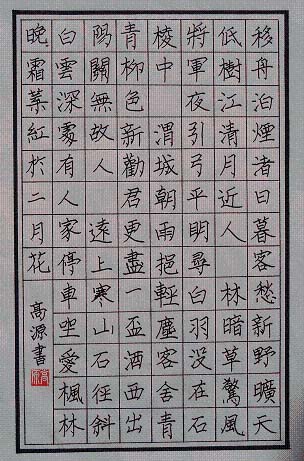 移舟泊煙渚日暮客愁新野曠天
低樹江清月近人 林暗草驚風
將軍夜引弓平明尋白羽沒在石
棱中 渭城朝雨挹輕塵客舍青
青柳色新勸君更盡一盃酒西出
陽關無故人 遠上寒山石徑斜
白雲深處有人家停車坐愛楓林
晚霜葉紅於二月花
高源書